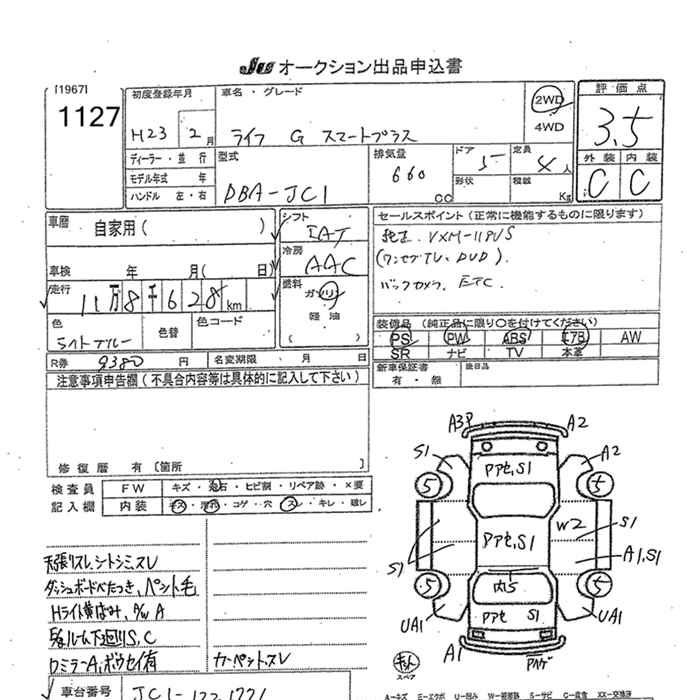 JU オークション出品申込書
[1967]
1127
初度登録年月
H23 2月
車名・グレード
ライフ G スマートプラス
2WD
4WD
評価点
3.5
外装 内装
C C
ディーラー・並行
モデル年式 年
ハンドル 左・右
型式
DBA-JC1
排気量
660 CC
ドア 5
形状
定員 4人
積載 Kg
車歴 自家用( )
車検 年 月( 日)
走行 11万8千628km
色 ライトブルー
色替
色コード
シフト
IAT
冷房
AAC
燃料
ガソリン
軽油
( )
セールスポイント(正常に機能するものに限ります)
純正 VXM-118VS
(ワンセグTV、DVD).
バックカメラ、ETC
装備品(純正品に限り○を付けてください)
PS PW ABS エアB AW
SR ナビ TV 本革
新車保証書
有・無
後日品
R券 9380円
名変期限 月 日
注意事項申告欄(不具合内容等は具体的に記入して下さい)
修復歴 有〔箇所 〕
検査員
記入欄
FW キズ・飛石・ヒビ割・リペア跡・×要
内装 キズ・汚れ・コゲ・穴・スレ・キレ・破レ
天張りスレ、シートシミ、スレ
ダッシュボードベたつき、ペット毛
Hライト黄ばみ、A/W A
ルーム下廻りS、C
ロミラーA、ボウセイ有
カーペットスレ
車台番号
A3P A2
S1 アアセ、S1 A2
5 5
W2 S1
アアセ、S1
S1 A1,S1
5 内5 5
UA1 アアセ S1 UA1
A1
スペア